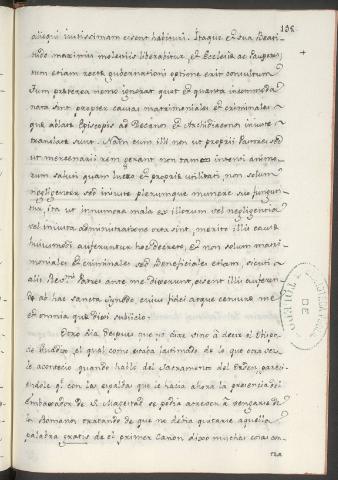 138
alijsqui iustissimam essent habituri. Itaque et sua Beati-
tudo maximis molestiis liberabitur, et Ecclesiae ac Paupe-
rum etiam recte gubernationi optime erit consultum
Jam praeterea nemo ignorat quot et quanta incommoda
nata sint propter causas matrimoniales et criminales
quae ablatae Episcopis ad Decanos et Archidiaconos iniuste
translatae sunt. Nam cum illi non ut proprii Pastores sed
ut mercenarii rem gerant non tam intenti anima-
rum saluti quam lucro et propriae utilitati, non solum
negligenter sed iniuste plerumque munere suo fungun-
tur, ita ut innumera mala ex illorum vel negligentia
vel iniusta administratione orta sint, merito illis causae
huiusmodi auferuntur hoc decreto, et non solum matri-
moniales et criminales sed Beneficiales etiam, sicuti
alii Resmi. Patres ante me dixerunt, essent illis auferen-
dae ab hac sancta synodo, cuius fidei atque censurae me
et omnia quae dixi subiicio.
Otro dia despues que yo dixe vino à decir el Obispo
de Guadix, el qual como estaba lastimado de lo que otra vez le
acontecio quando hablò del Sacramento del Orden, pareci-
endole qe. con las espaldas que le hacia ahora la presencia del
Embaxador de S. Magestad se podia atrever à vengarse de
los Romanos tratando de que no debia quitarse aquella
palabra gratis de el primer Canon dixo muchas cosas con-
tra
TOLEDO
DE